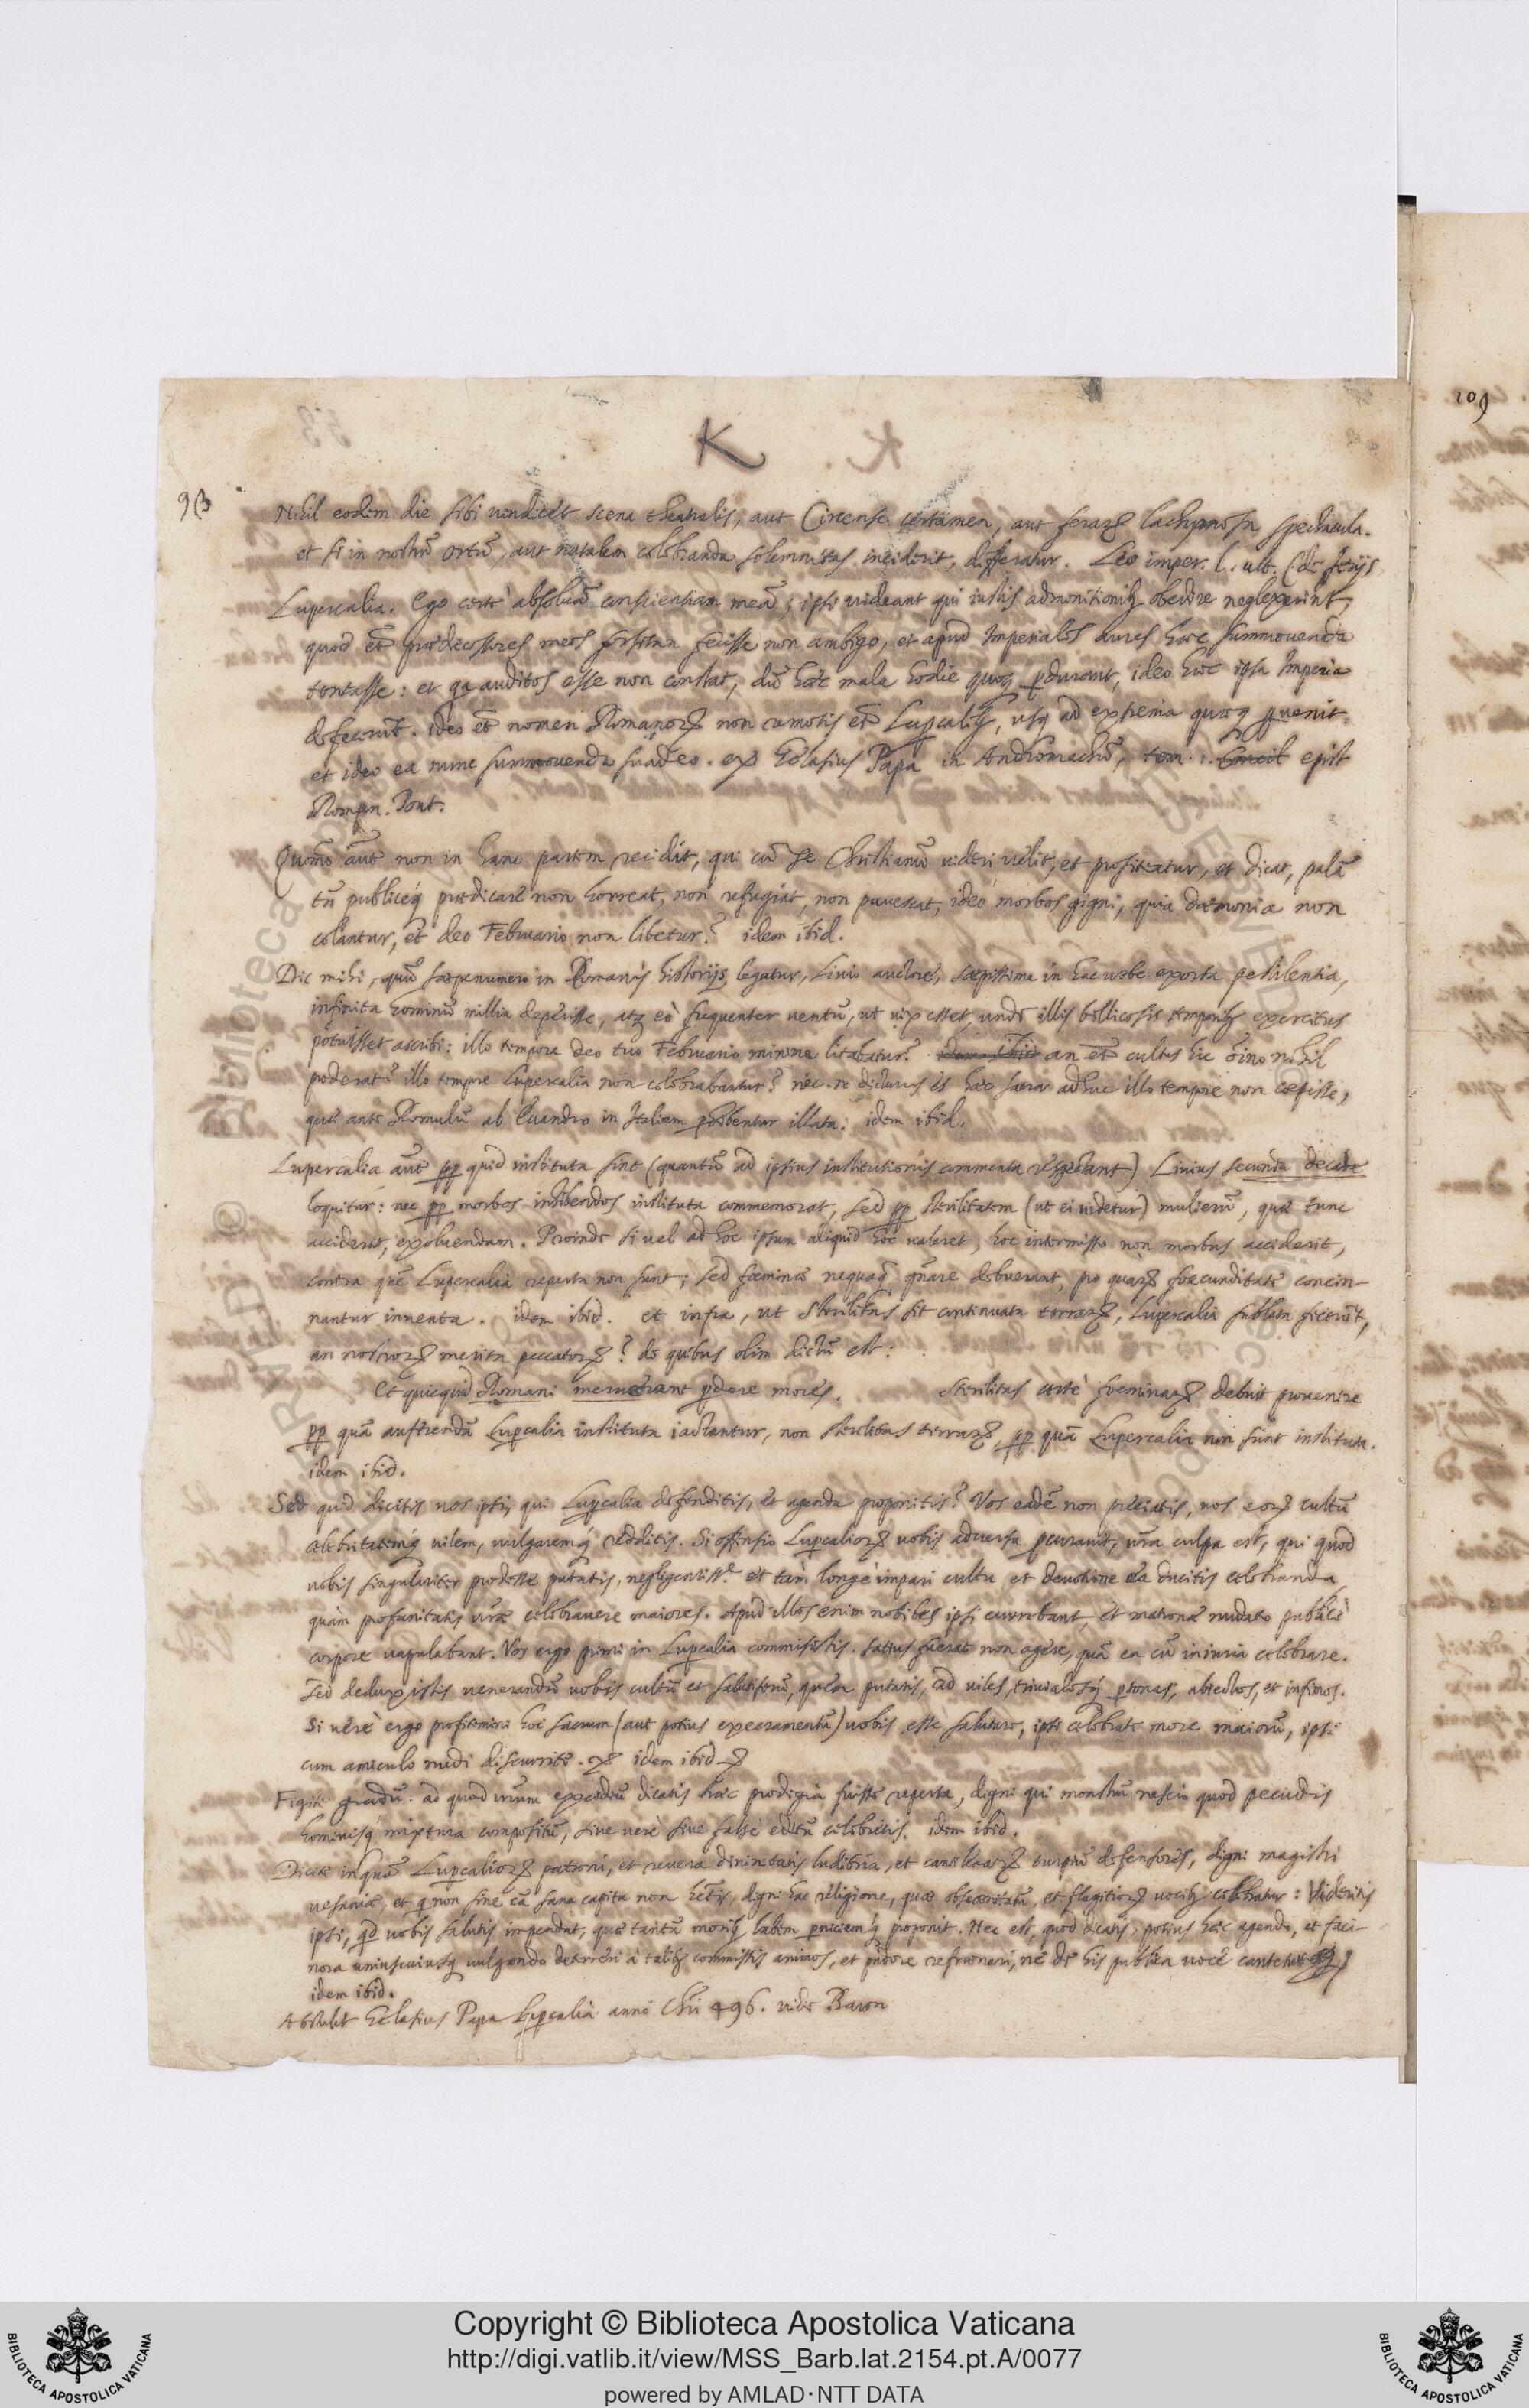 K
93
Nihil eodem die sibi vindicet scena theatralis, aut Circense certamen, aut ferarꝝ lachrymosa spectacula.
et si in nostrũ ortũ, aut natalem celebranda solemnitas inciderit, differatur. Leo imper. l. ult. C de ferijs
Lupercalia. Ego certè absoluã conscientiam meã; ipsi uideant qui iustis admonitionibꝫ obedire neglexerint,
quod et̃ prædecessores meos forsitan fecisse non ambigo, et apud Imperiales aures hæc summouenda
tentasse: et qa auditos esse non constat, dũ hæc mala hodie quoqꝫ ꝑdurant, ideo hæc ipsa Imperia
defecerũt. ideo et̃ nomen Romanorꝝ non remotis et̃ Luꝑcalibꝫ, usqꝫ ad extrema quæqꝫ ꝑuenit.
et ideo ea nunc summouenda suadeo. Gelasius Papa in Andromachũ, tom. 1. Concil epist
Roman. Pont.
Quomõ aũt non in hanc partem recidit, qui cũ se Christianũ uideri uelit, et profiteatur, et dicat, palã
tñ publicéqꝫ prædicare non horreat, non refugiat, non pauescat, ideo morbos gigni, quia dæmonia non
colantur, et deo Februario non litetur? idem ibid.
Dic mihi, quũ sæpenumero in Romanis historijs legatur, Liuio auctore, sæpissime in hac urbe exorta pestilentia,
infinita hominũ millia deperisse, atqꝫ eò frequenter uentũ, ut uix esset, unde illis bellicosis temporibꝫ exercitus
potuisset ascribi: illo tempore deo tuo Februario minime litabatur? idem ibid an et̃ cultus hic oĩno nihil
poderat? illo tempore Lupercalia non celebrabantur? nec .n. dicturus es hæc sacra adhuc illo tempore non cœpisse,
quæ ante Romulũ ab Euandro in Italiam ꝑhibentur illata. idem ibid.
Lupercalia aũt ꝓꝑ quid instituta sint (quantũ ad ipsius institutionis commenta respectant) Liuius secunda decade
loquitur: nec ꝓꝑ morbos inhibendos instituta commemorat, sed ꝓꝑ sterilitatem (ut ei uidetur) mulierũ, quæ tunc
acciderat, exoluendam. Proinde si uel ad hoc ipsum aliquid hoc ualeret, hoc intermisso non morbus acciderit,
contra quẽ Lupercalia reperta non sunt; sed fœminæ nequaqꝫ gñare debuerant, pro quarꝝ fœcunditate concin-
nantur inuenta. idem ibid. et infra, ut sterilitas sit continuata terrarꝝ, Lupercalia sublata fecerũt,
an nostrorꝝ merita peccatorꝝ? de quibus olim dictũ est:
Et quicquid Romani meruerunt ꝑdere mores. Sterilitas certè fœminarꝝ debuit prouenire
ꝓꝑ quã auferendã Luꝑcalia instituta iactantur, non sterilitas terrarꝝ, ꝓꝑ quã Lupercalia non sunt instituta.
idem ibid.
Sed quid dicitis uos ipsi, qui Luꝑcalia defenditis, et agenda proponitis? Vos eadẽ non pretiatis, uos eorꝝ cultũ
celebritatemqꝫ uilem, uulgaremqꝫ redditis. Si offensio Luꝑcaliorꝝ nobis aduersa ꝓcurauit, ur̃a culpa est, qui quod
uobis singulariter prodesse putatis, negligentiss.e et tam longè impari cultu et deuotione ea ducitis celebranda
quàm profanitatis ur̃æ celebrauere maiores. Apud illos enim nobiles ipsi currebant, et matronæ nudato publicè
corpore uapulabant. Vos ergo primi in Luꝑcalia commisistis. satius fuerat non agere, quã ea cũ iniuria celebrare.
Sed deduxistis uenerandũ uobis cultũ et salutiferũ, quem putatis, ad uiles, triuialesqꝫ ꝑsonas, abiectos, et infimos.
Si uerè ergo profitemini hoc sacrum (aut potius execramentũ) uobis esse salutare, ipsi celebrate more maiorũ, ipsi
cum amiculo nudi discurrite. idem ibid
Figite gradũ. ad quod unum excidiũ dicatis hæc prodigia fuisse reperta, digni qui monstrũ nescio quod pecudis
hominisqꝫ mixtura compositũ, siue uerè siue falsè editũ celebretis. idem ibid.
Dicite inquã Luꝑcaliorꝝ patroni, et reuera diuinitatis ludibria, et cantilenarꝝ turpiũ defensores, digni magistri
uesaniæ, et q non sine cã sana capita non hẽtis, digni hac religione, quæ obscœnitatũ, et flagitiorꝝ uocibꝫ celebratur: Videritis
ipsi, qd uobis salutis impendat, quæ tantã moribꝫ labem ꝑniciemqꝫ proponit. Nec est, quod dicatis, potius hæc agendo, et faci-
nora uniuscuiusqꝫ uulgando deterreri à talibꝫ commissis animos, et pudore refrænari, ne de his publica uoce cantetur
idem ibid.
Abstulit Gelasius Papa Luꝑcalia anno Chr̃i 496. uide Baron
109
Copyright © Biblioteca Apostolica Vaticana
http://digi.vatlib.it/view/MSS_Barb.lat.2154.pt.A/0077
powered by AMLAD·NTT DATA
BIBLIOTECA APOSTOLICA VATICANA
BIBLIOTECA APOSTOLICA VATICANA